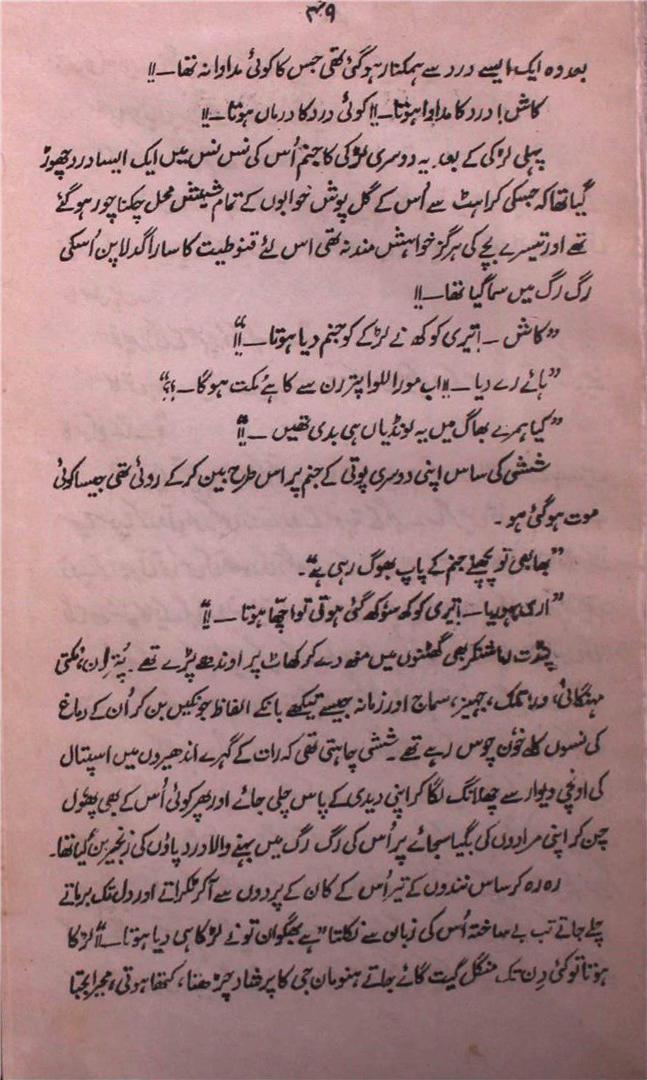 ۴۹
بعد وہ ایک ایسے درد سے ہمکنار ہوگئی تھی جس کا کوئی مداوا نہ تھا۔!!
کاش! درد کا مداوا ہوتا۔!! کوئی درد کا درماں ہوتا۔!!
پہلی لڑکی کے بعد یہ دوسری لڑکی کا جنم اُس کی نس نس میں ایک ایسا درد چھوڑ
گیا تھا کہ جسکی کراہٹ سے اُس کے گل پوش خوابوں کے تمام شیشش محل چکنا چور ہوگئے
تھے اور تیسرے بچے کی ہرگز خواہش مند نہ تھی اس لئے قنوطیت کا سارا گدلا پن اُسکی
رگ رگ میں سما گیا تھا۔!!
”کاش۔! تیری کوکھ نے لڑکے کو جنم دیا ہوتا۔!!“
”ہائے رے دیا۔!! اب مورا للوا پتر رن سے کاہے مکت ہوگا۔؟؟“
”کیا ہمرے بھاگ میں یہ لونڈیاں ہی بدی تھیں۔!!“
ششی کی ساس اپنی دوسری پوتی کے جنم پر اس طرح بین کر کے روئی تھی جیسا کوئی
موت ہوگئی ہو۔
”بھابھی تو پچھلے جنم کے پاپ بھوگ رہی ہے“۔
”اری بہوریا۔! تیری کوکھ سوکھ گئی ہوتی تو اچھا ہوتا۔!!“
پنڈت رماشنکر بھی گھٹنوں میں منھ دے کر کھاٹ پر اوندھے پڑے تھے۔ پُتر رِن، مُکتی
مہنگائی، دہا تمک، جہیز، سماج اور زمانہ جیسے تیکھے بانکے الفاظ جونکیں بن کر اُن کے دماغ
کی نسوں کا خون چوس رہے تھے۔ ششی چاہتی تھی کہ رات کے گہرے اندھیروں میں اسپتال
کی اونچی دیوار سے چھلانگ لگا کر اپنی دیدی کے پاس چلی جائے اور پھر کوئی اُس کے بھی پھول
چن کر اپنی مرادوں کی بگیا سجائے پر اُس کی رگ رگ میں بہنے والا درد پاؤں کی زنجیر بن گیا تھا۔
رہ رہ کر ساس نندوں کے تیر اُس کے کان کے پردوں سے آکر ٹکراتے اور دل تک برماتے
چلے جاتے تب بے ساختہ اُس کی زبان سے نکلتا ”ہے بھگوان تو نے لڑکا ہی دیا ہوتا۔!!“ لڑکا
ہوتا تو کئی دِن تک منگل گیت گائے جاتے ہنومان جی کا پرشاد چڑھتا، کتھا ہوتی، مجیرا بجتا